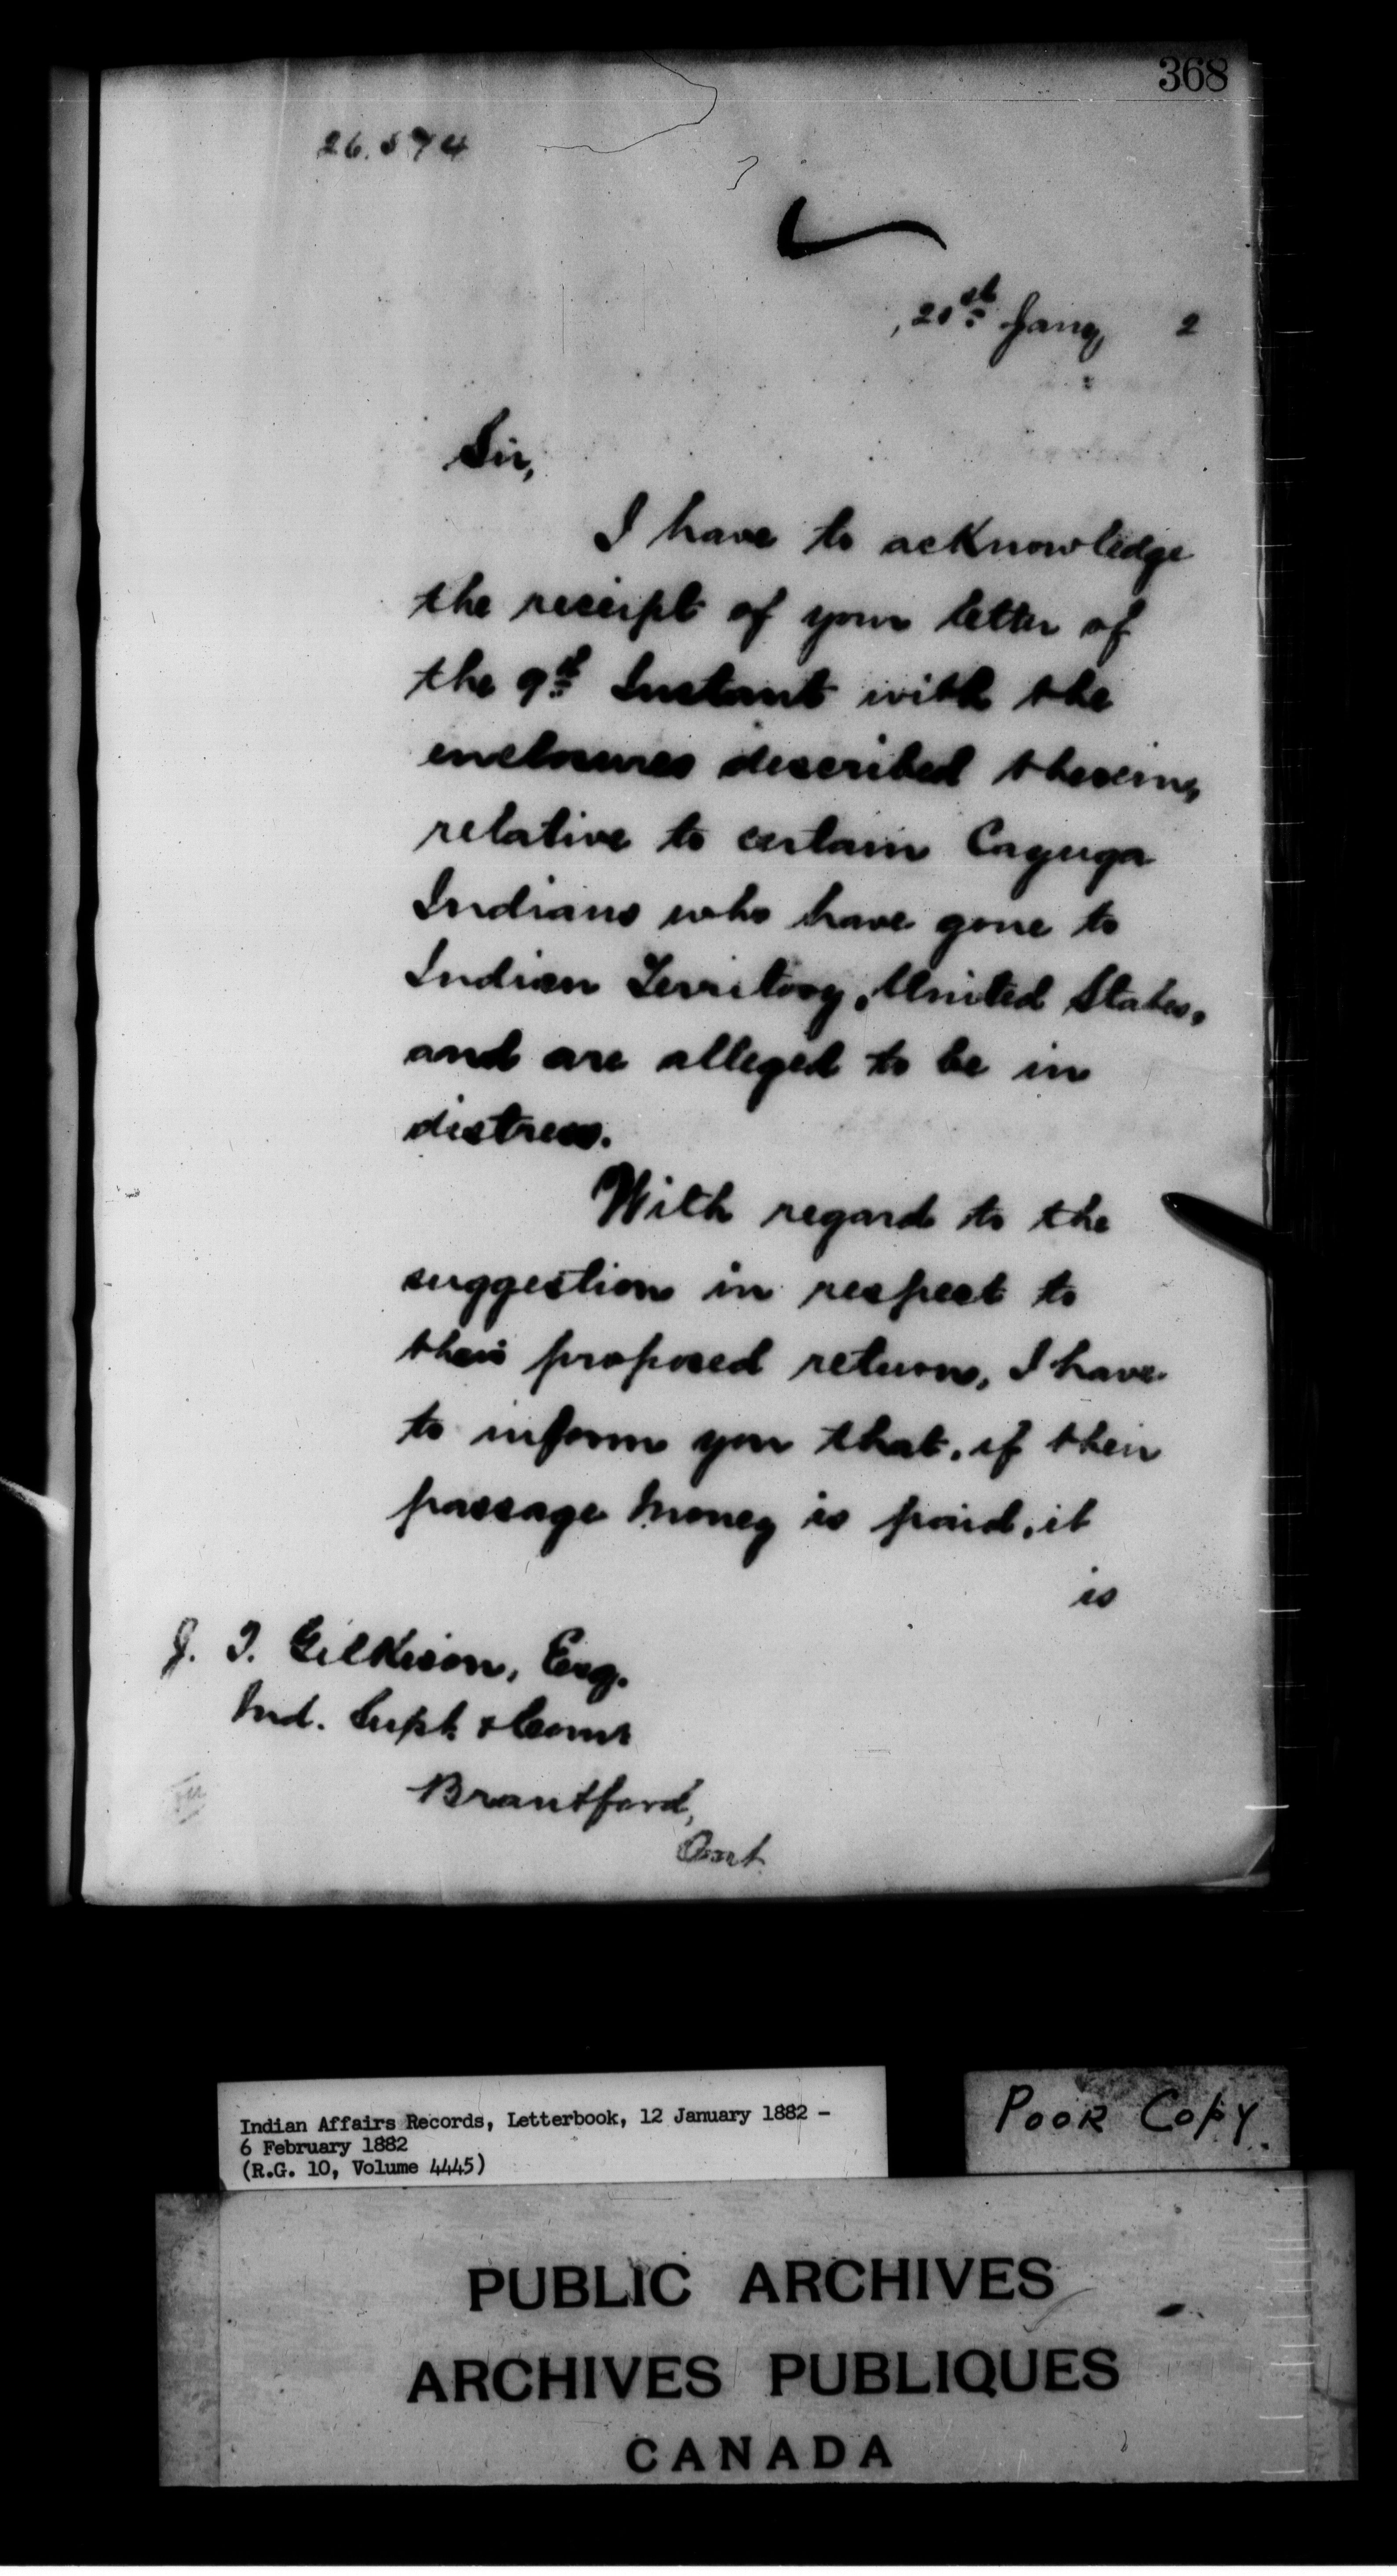 368
26.574
, 21st Jany 2
Sir,
I have to acknowledge
the receipt of your letter of
the 9th Instant with the
enclosures described therein,
relative to certain Cayuga
Indians who have gone to
Indian Territory, United States,
and are alleged to be in
distress.
With regard to the
suggestion in respect to
their proposed return, I have
to inform you that, if their
passage money is paid, it
is
J. T. Gilkison, Esq.
Ind. Supt. & Comr
Brantford,
Ont.
Indian Affairs Records, Letterbook, 12 January 1882 -
6 February 1882
(R.G. 10, Volume 4445)
POOR COPY
PUBLIC ARCHIVES
ARCHIVES PUBLIQUES
CANADA